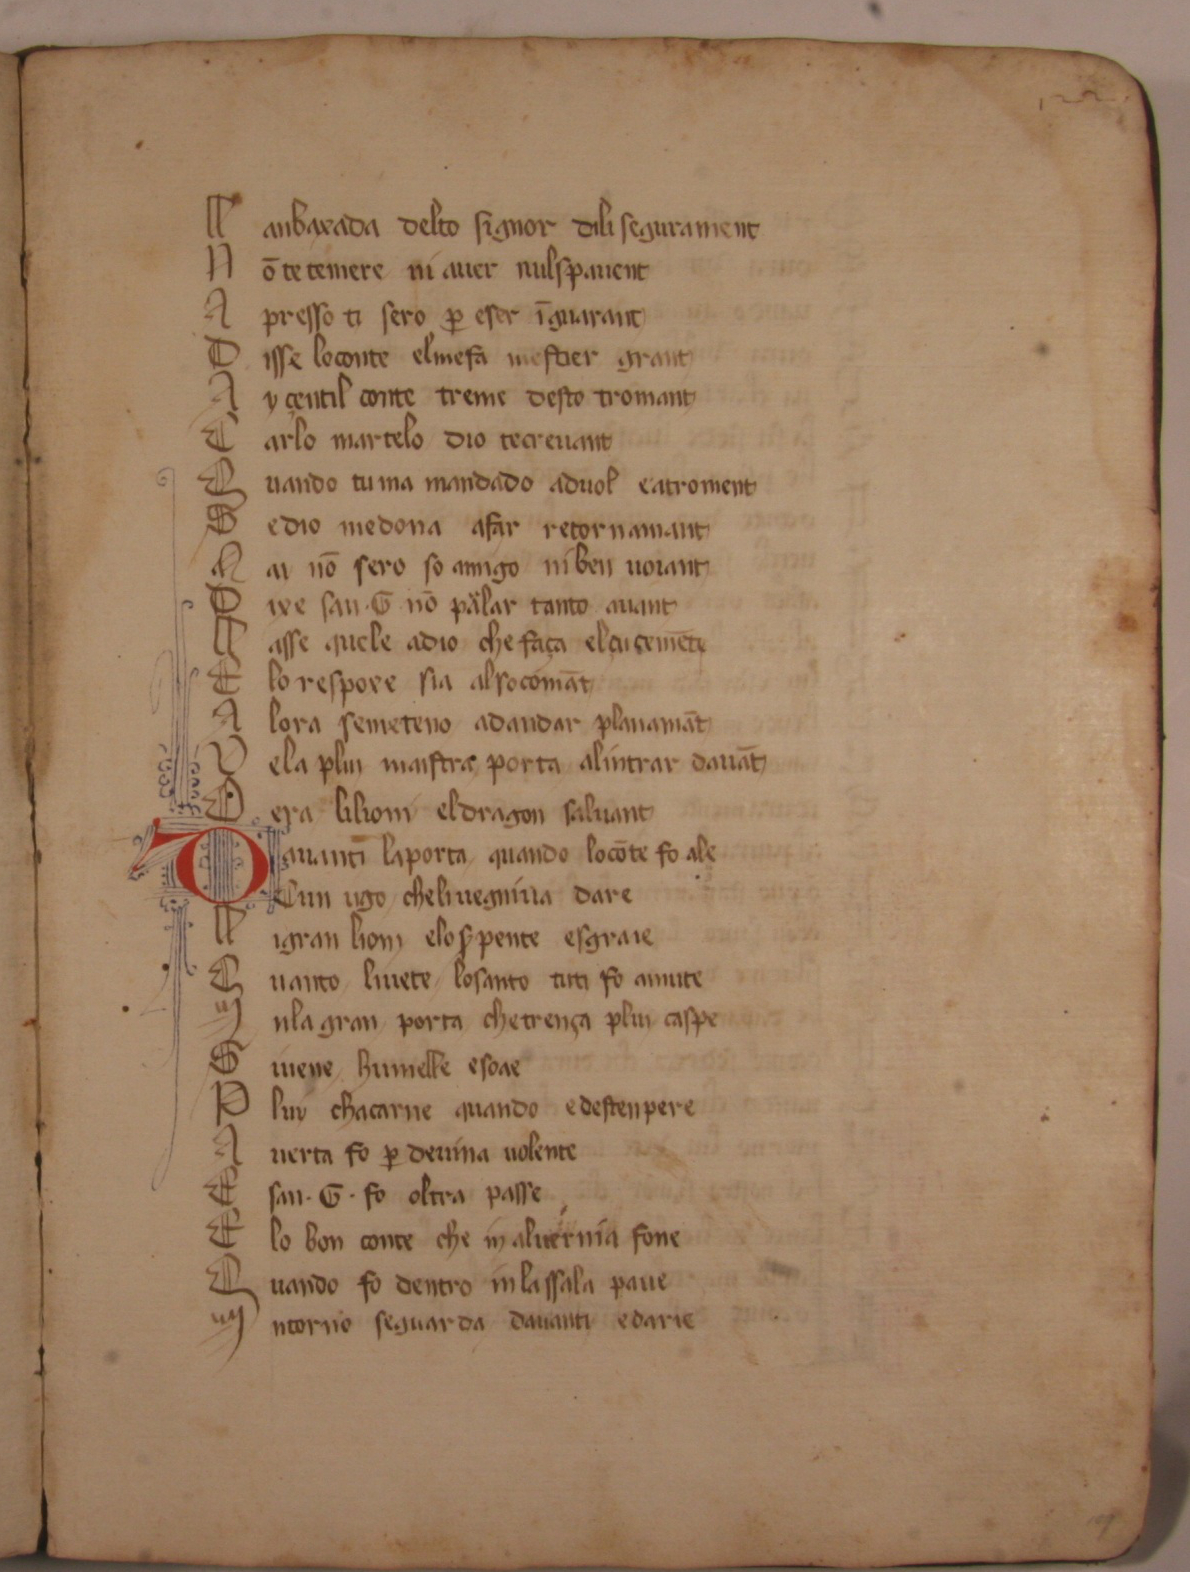 L anbaxada delto signor dili segurament
N ō te temere ni auer nul spauent
A presso ti sero ꝑ eser ī guarant
D isse lo conte el me fa mestier grant
A y çentil conte treme desto tromant
C arlo martelo dio te creuant
Q uando tu ma mandado aduol catroment
S e dio me dona afar retornamant
M ai nō sero so amigo ni ben uoiant
D ixe san · G · nō parlar tanto auant
L asse quele adio che faça el çuçemēte
E lo respoxe sia al so comāt
A lora se meteno ad andar planamāt
V e la plui maistra porta al intrar dauāt
D era li lioni el dragon saluant
D auanti la porta quando lo cōte fo ale
Cun ugo che li uegniua dare
L i gran lioni e lo sꝑpente esgraie
Q uanto li uete lo santo tuti fo amute
I n la gran porta che trença plui caspe
S i uene humelle e soae
P lui cha carne quando e destenpere
A uerta fo ꝑ deuina uolente
E san · G · fo oltra passe
E lo bon conte che in aluernia fo ne
Q uando fo dentro in la ssala paue
I ntorno se guarda dauanti e darie